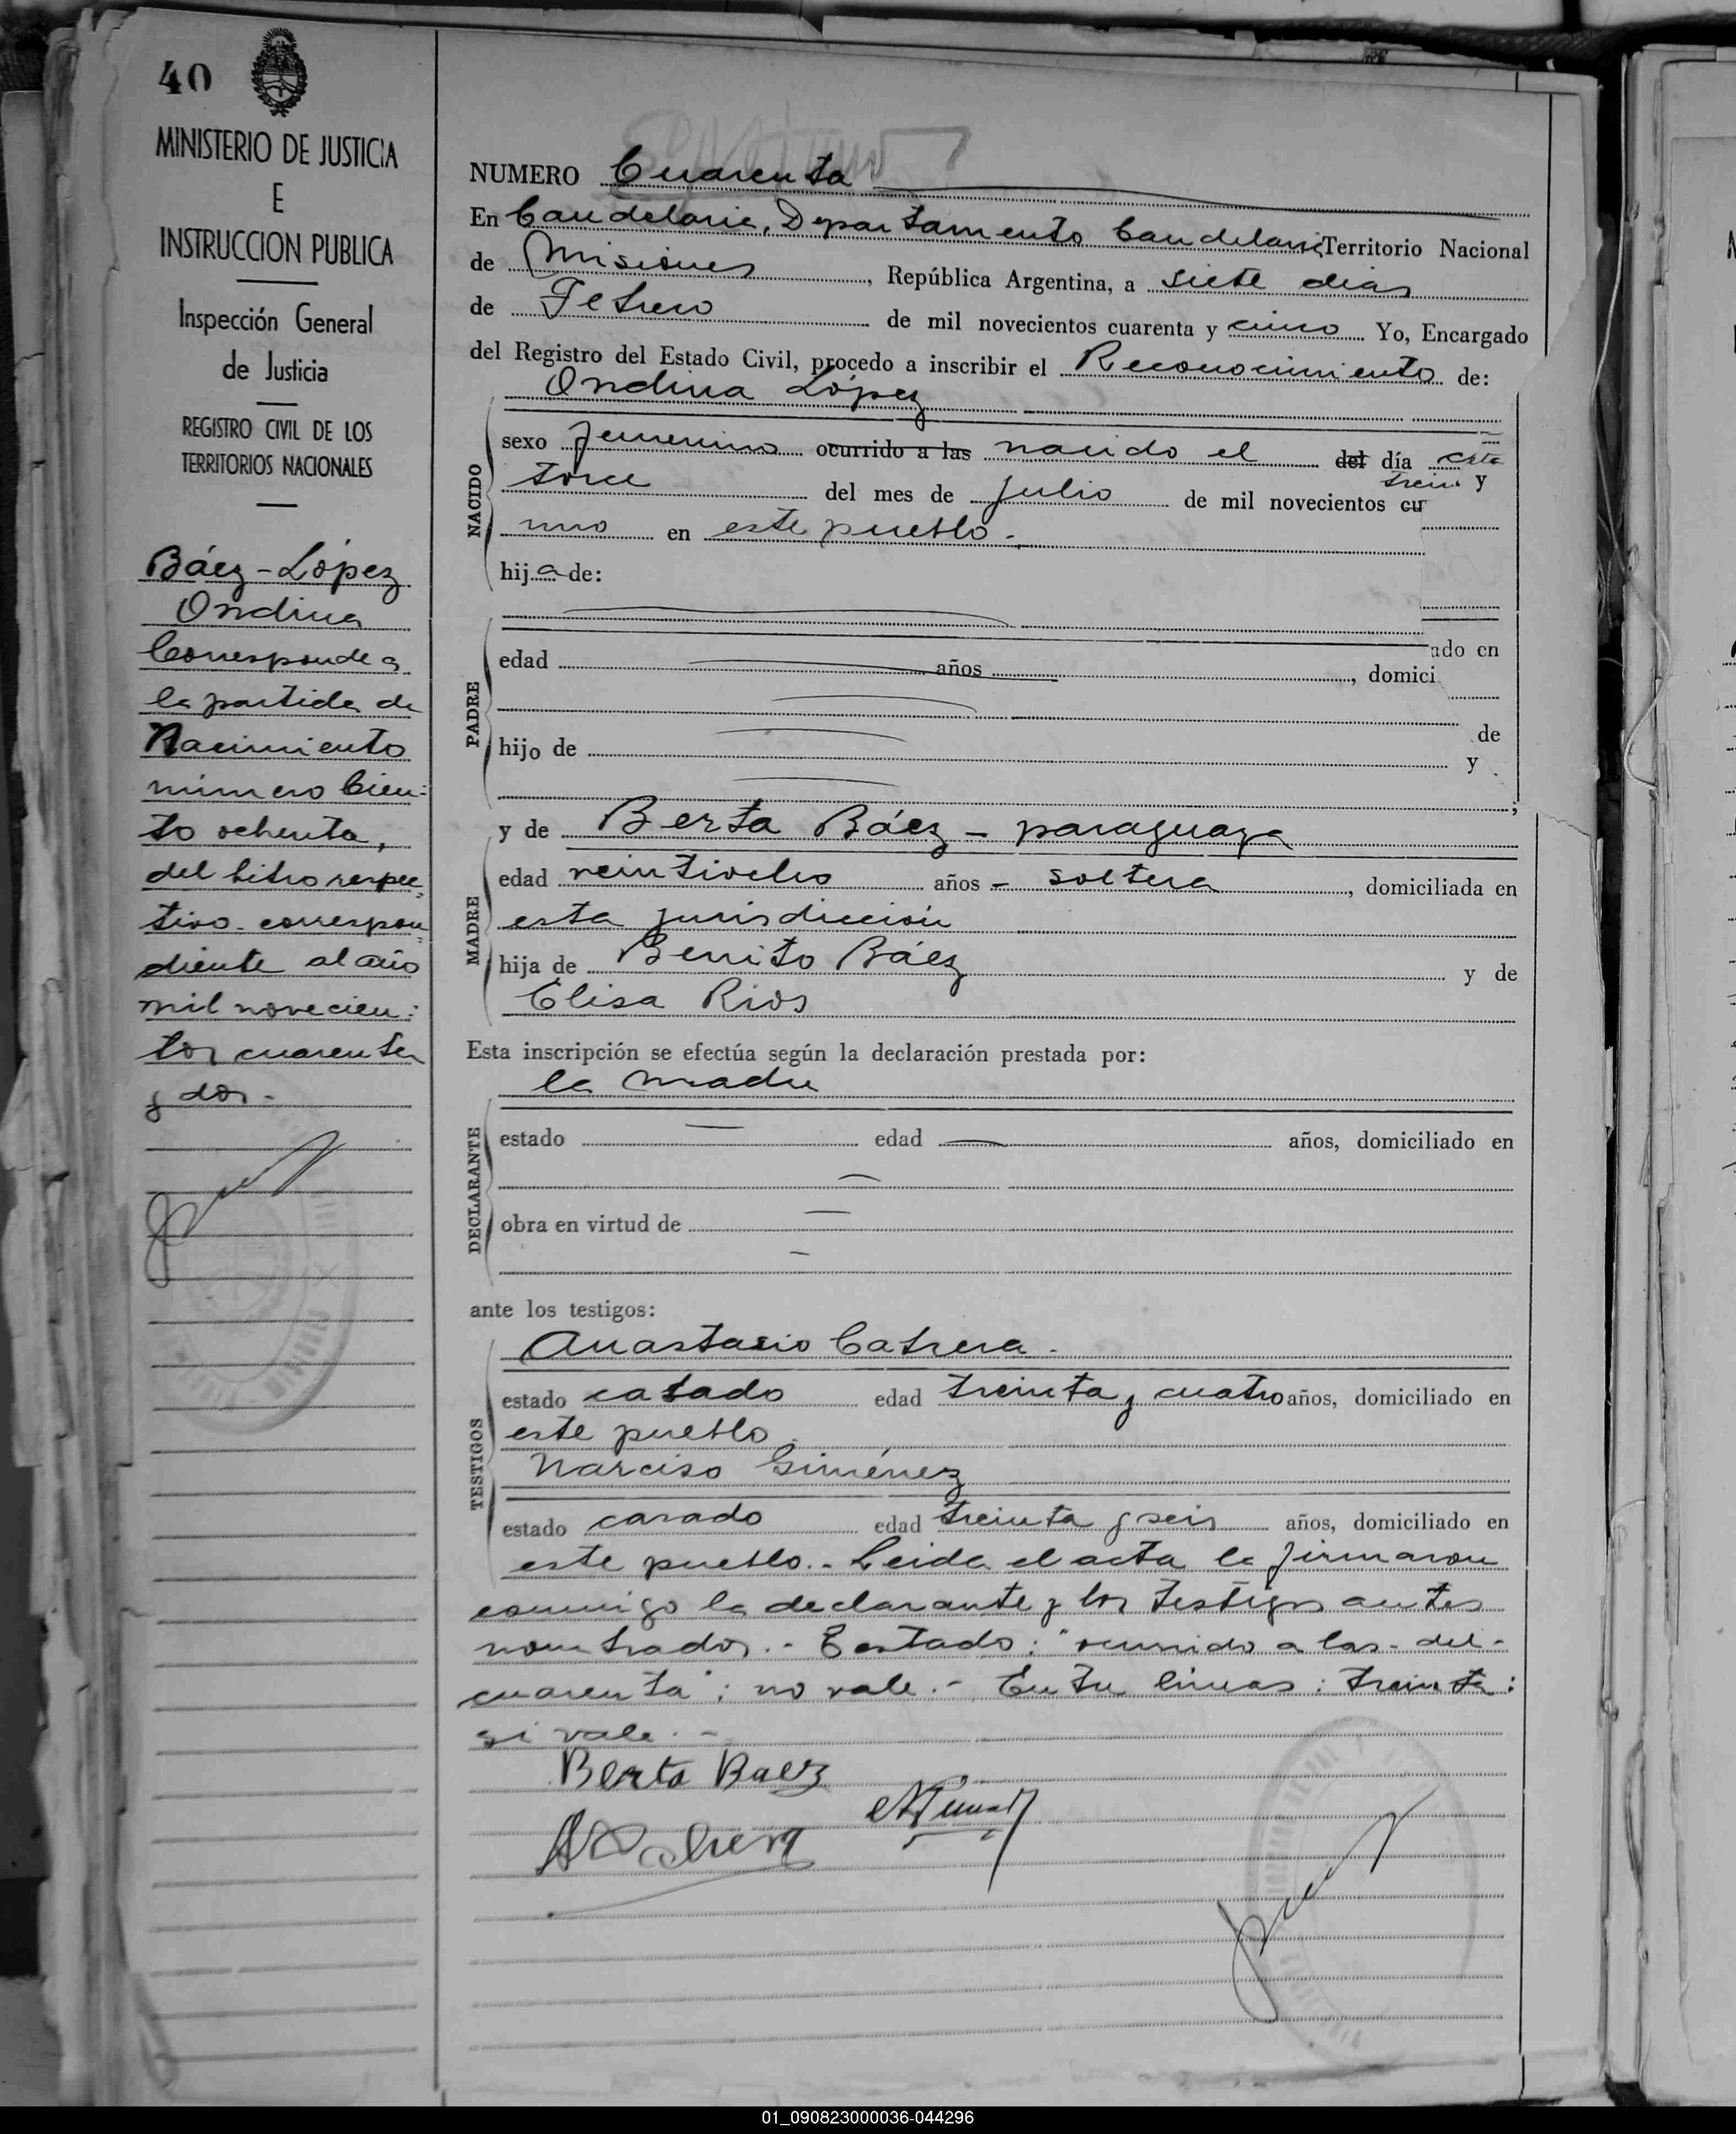 40
MINISTERIO DE JUSTICIA
E
INSTRUCCION PUBLICA
Inspección General
de Justicia
REGISTRO CIVIL DE LOS
TERRITORIOS NACIONALES
Báez-López
Ondina
Corresponde a
la partida de
Nacimiento
número Cien-
to ochenta,
del libro respec-
tivo correspon-
diente al año
mil novecien-
tos cuarenta
y dos.-
NUMERO Cuarenta
En Candelaria, Departamento Candelaria Territorio Nacional
de Misiones, República Argentina, a siete días
de Febrero de mil novecientos cuarenta y cinco Yo, Encargado
del Registro del Estado Civil, procedo a inscribir el Reconocimiento de:
Ondina López
NACIDO
sexo femenino ocurrido a las nacido el del día cato
torce del mes de Julio de mil novecientos cu trein y
uno en este pueblo.-
hija de:
PADRE
edad años, domici
ado en
hijo de de
y
;
MADRE
y de Berta Báez - paraguaya
edad veintiocho años - soltera, domiciliada en
esta jurisdicción
hija de Benito Báez y de
Elisa Rios
Esta inscripción se efectúa según la declaración prestada por:
la madre
DECLARANTE
estado edad años, domiciliado en
obra en virtud de
ante los testigos:
TESTIGOS
Anastasio Cabrera.
estado casado edad treinta y cuatro años, domiciliado en
este pueblo
Narciso Giménez
estado casado edad treinta y seis años, domiciliado en
este pueblo.- Leida el acta la firmaron
conmigo la declarante y los testigos antes
nombrados.- Testado: "ocurrido a las- del-
cuarenta": no vale.- Entre lineas: treinta:
si vale.-
Berta Baez
01_090823000036-044296